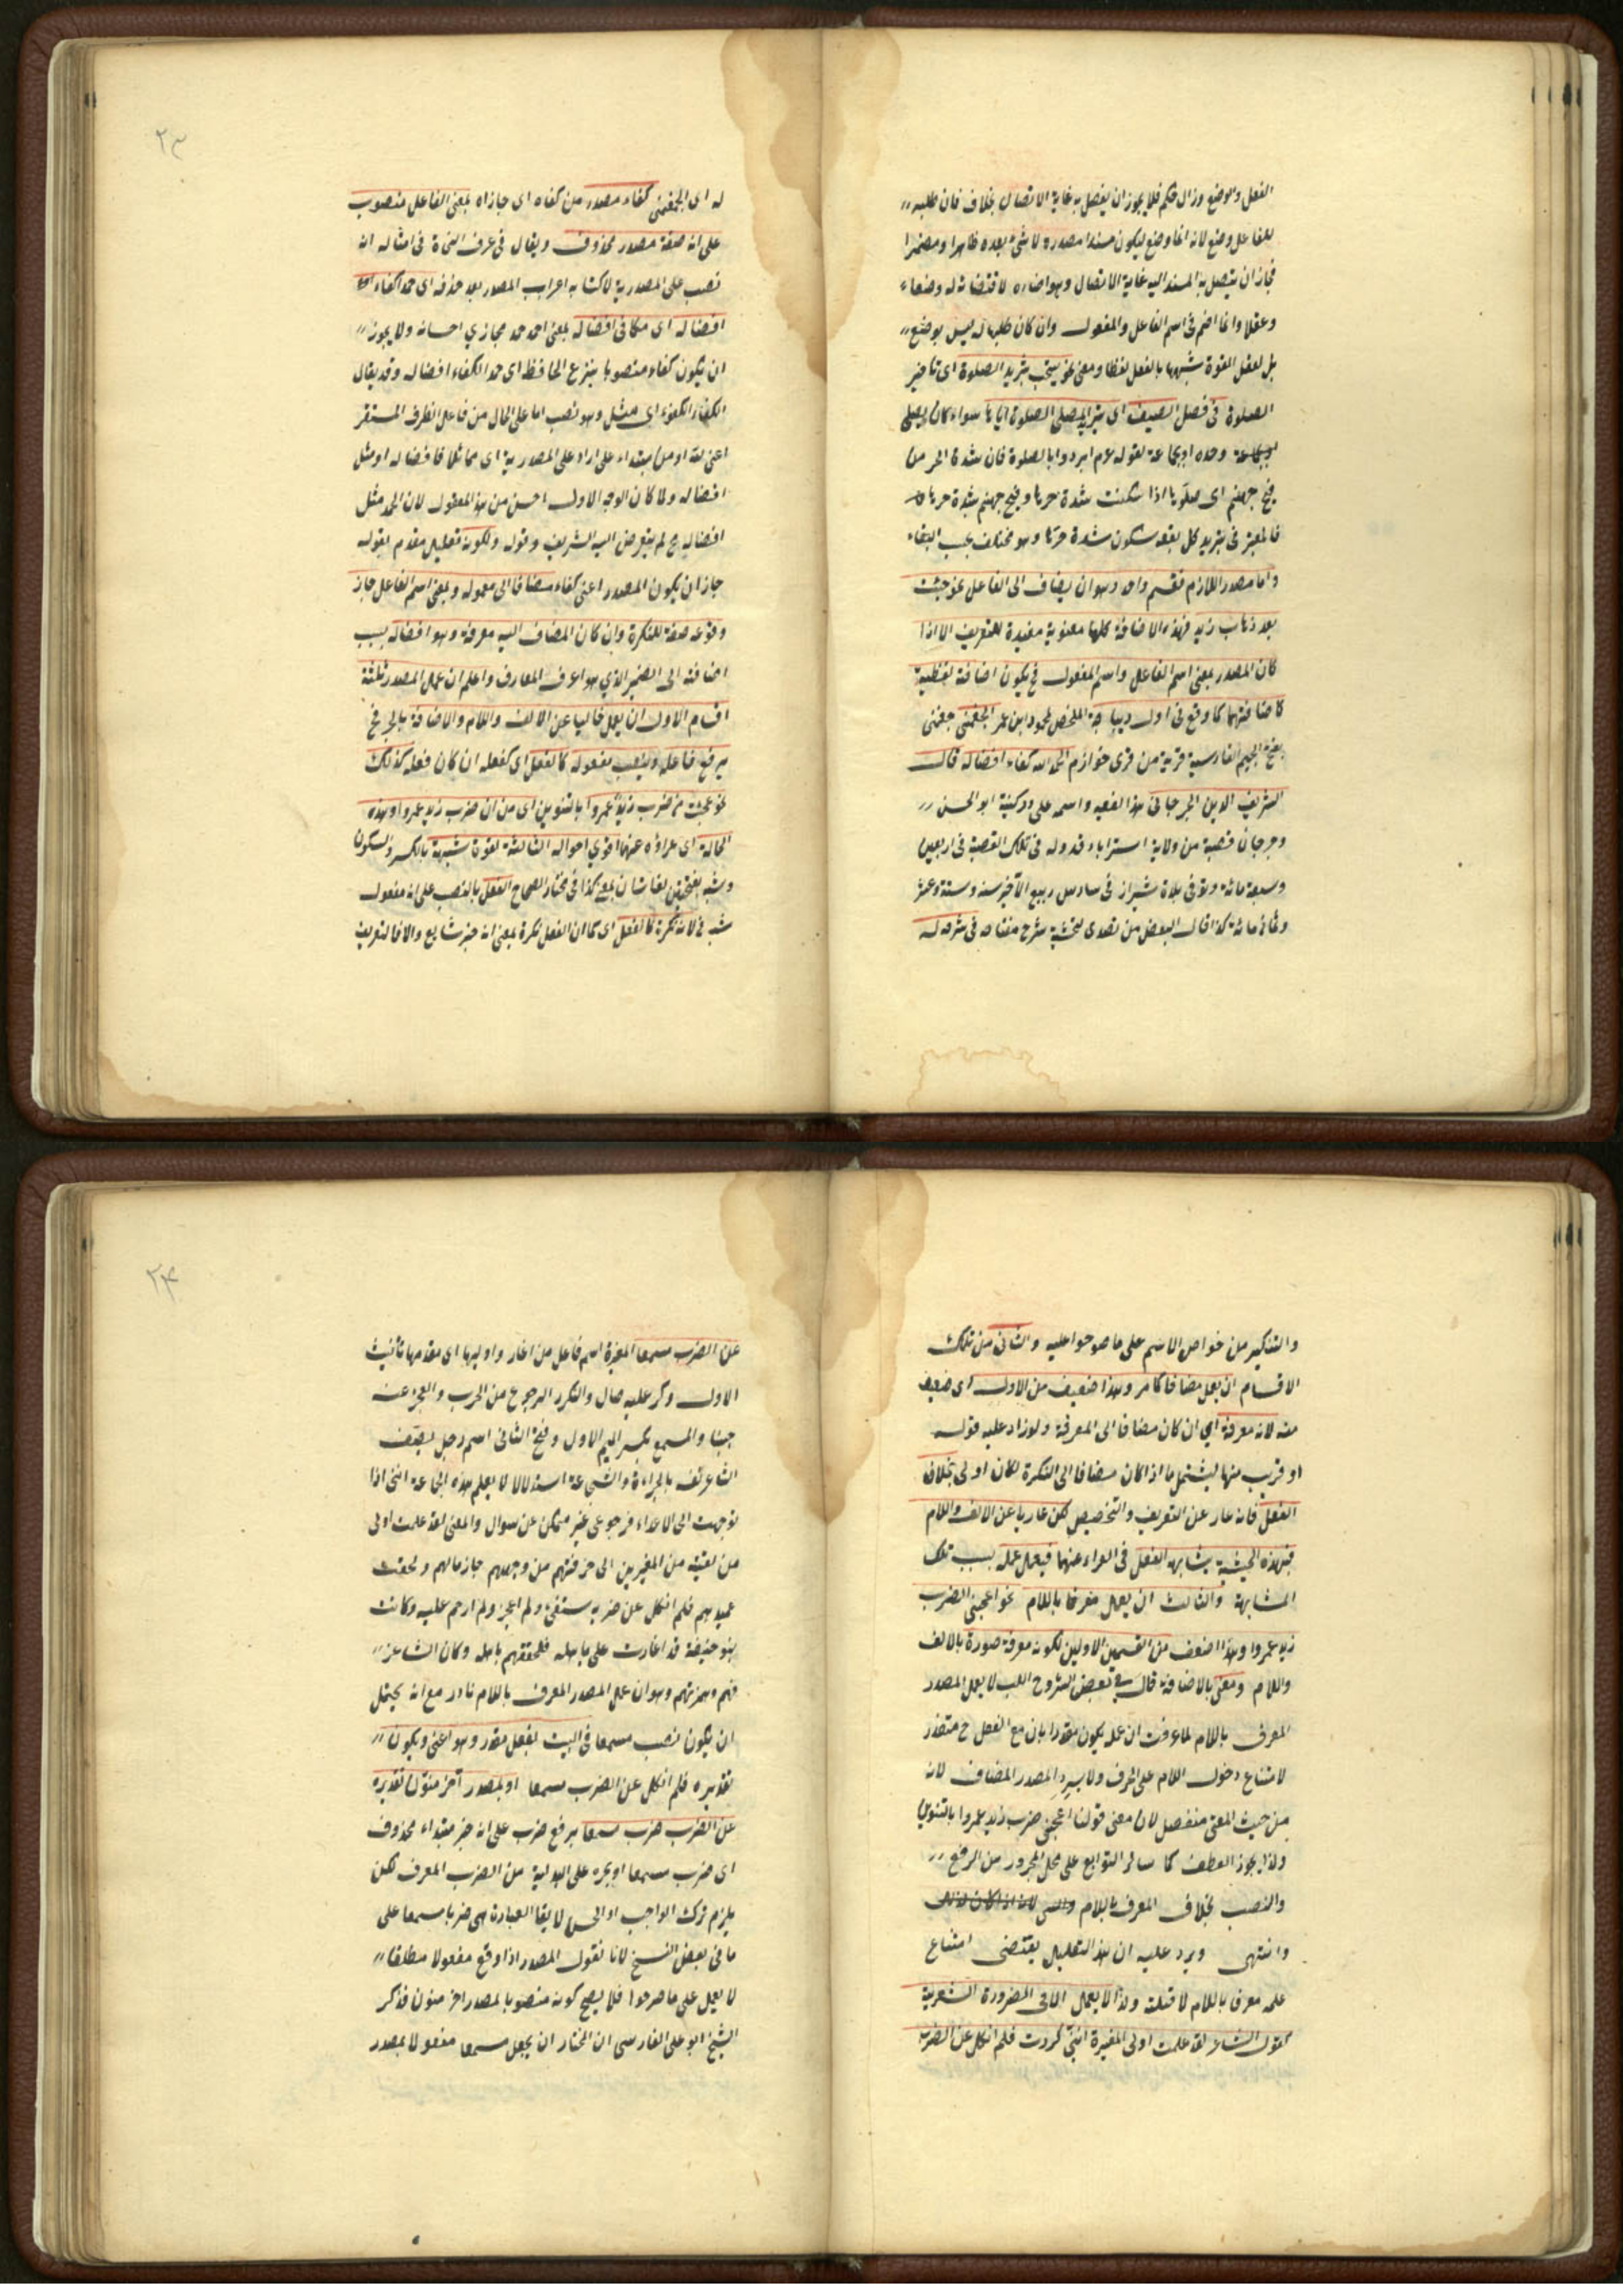 الفعل والوضع وزال حكم فلا يجوز ان يفصل به غاية الاتصال بخلاف فان طلبه
للفاعل وضع لانه انما وضع ليكون مسندا مصدره لا شئ بعده ظاهرا ومضمرا
فجاز ان يتصل به المسند اليه غاية الاتصال وهو اضماره لاقتضائه له وضعا
وعقلا وانما اضم فى اسم الفاعل والمفعول وان كان طلبها له ليس بوضع
بل لعقل لقوة شبهها بالفعل لفظا ومعنى نحو يستحب تبريد الصلوة اى تاخير
الصلوة فى فصل الصيف اى تبريد المصلى الصلوة اياها سواء كان يصلى
وحده او بجماعة لقوله عم ابردوا بالصلوة فان شدة الحر من
فيح جهنم اى صلوها اذا سكنت شدة حرها وفيح جهنم شدة حرها
فالمعتبر فى تبريد كل بقعه سكون شدة حرها وهو مختلف بحسب البقاء
واما مصدر اللازم فقسم واحد وهو ان يضاف الى الفاعل نحو جئت
بعد ذهاب زيد فهذه الاضافة كلها معنوية مفيدة للتعريف الا اذا
كان المصدر بمعنى اسم الفاعل واسم المفعول فح يكون اضافته لفظية
كاضافتهما كما وقع فى اول ديباجة الملخص لمحمود ابن عمر الجغمنى جغمنى
بفتح الجيم الفارسية قرية من قرى خوارزم الحمد لله كفاء افضاله قال
الشريف الدين الجرجانى هذا الفقيه واسمه على وكنيته ابو الحسن
وجرجان قصبة من ولاية استراباد قد وله فى تلك القصبة فى اربعين
وسبعة مائة وتوفى بلدة شيراز فى سادس ربيع الآخر سنه وستة وعشر
وثمانمائة كذا قال البعض من تصدى لتحشية شرح مفتاحه فى شرحه
له اى الجغمنى كفاء مصدر من كفاه اى جازاه بمعنى الفاعل منصوب
على انه صفة مصدر محذوف ويقال فى عرف النحاة فى امثاله انه
نصب على المصدرية لاكتسابه اعراب المصدر بعد حذفه اى حمدا كفاء
افضاله اى مكافى افضاله بمعنى احمد حمد مجازي احسانه ولا يجوز
ان يكون كفاء منصوبا بنزع الخافظ اى حمدا لكفاء افضاله وقد يقال
الكفاء الكفؤ اى مثل وهو نصب اما على الحال من فاعل الظرف المستقر
اعنى لله او من مبتداء على اراد على المصدرية اى مماثلا فافضاله او مثل
افضاله ولما كان الوجه الاول احسن من هذا المعقول لان الحمد مثل
افضاله ح لم يتعرض اليه الشريف وقوله ولكونه تعليل مقدم لقوله
جاز ان يكون المصدر اعنى كفاء مضافا الى معموله وبمعنى اسم الفاعل جاز
وقوعه صفة للنكرة وان كان المضاف اليه معرفة وهو افضاله بسبب
اضافته الى الضمير الذي هو اعرف المعارف واعلم ان عمل المصدر ثلثة
اقسام الاول ان يعمل خاليا عن الالف واللام والاضافة بالجر فح
يرفع فاعله وينصب مفعوله كالفعل اى كفعله ان كان فعله كذلك
نحو عجبت من ضرب زيد عمروا بالتنوين اى من ان ضرب زيد عمروا وهذه
الحالة اى عراؤه عنهما اقوي احواله الثالثة لقوة شبهه بالكسر والسكون
وشبه بفتحتين لغتان بمعنى كذا فى مختار الصحاح الفعل بالنصب على انه مفعول
شبه لانه نكرة كالفعل اى كما ان الفعل نكرة بمعنى انه خبر شايع والا فالتعريف
والتنكير من خواص الاسم على ما صرحوا عليه والثانى من تلك
الاقسام ان يعمل مضافا كما مر وهذا ضعيف من الاول اى ضعيف
منه لانه معرفة اي ان كان مضافا الى المعرفة ولو زاد عليه قوله
او قريب منها ليشتمل ما اذا كان مضافا الى النكرة لكان اولى بخلاف
الفعل فانه عار عن التعريف والتخصيص لكن عاريا عن الالف واللام
فبهذه الحيثية يشابه الفعل فى العراء عنهما فيعمل عمله بسبب تلك
المشابهة والثالث ان يعمل معرفا باللام نحو اعجبنى الضرب
زيد عمروا وهذا اضعف من القسمين الاولين لكونه معرفة صورة بالالف
واللام ومعنى بالاضافة قال فى بعض شروح اللب لا يعمل المصدر
المعرف باللام لما عرفت ان عمله يكون مقدرا بان مع الفعل ح متعذر
لامتناع دخول اللام على الحرف ولا يرد المصدر المضاف لانه
من حيث المعنى منفصل لان معنى قولنا اعجبنى ضرب زيد عمروا بالتنوين
ولذا يجوز العطف كما سائر التوابع على محل المجرور من الرفع
والنصب بخلاف المعرف باللام
وانتهى ويرد عليه ان هذا التعليل يقتضى امتناع
عمله معرفا باللام لا قلته ولذا لا يعمل الا فى الضرورة الشعرية
كقول الشاعر لقد علمت اولى المغيرة اننى كررت فلم انكل عن الضرب
عن الضرب مسمعا المغيرة اسم فاعل من اغار واوليها اى مقدمها تانيث
الاول وكر عليه صال والكر الرجوع من الحرب والعجز عنه
جبنا والمسمع بكسر الميم الاول وفتح الثانى اسم رجل يصف
الشاعر نفسه بالجراءة والشجاعة استدلالا لا يعلم هذه الجماعة اننى اذا
توجهت الى الاعداء فرجوعى غير ممكن عن سوال والمعنى لقد علمت اولى
من لقيته من المغيرين الى حرفتهم عن وجههم جازما لهم ولحقت
عميدهم فلم انكل عن ضربه بسيفى ولم اعجز ولم ارحم عليه وكانت
بنو حنيفة قد اغارت على باهله فلحقتهم باهله وكان الشاعر
فهم وهزمتهم وهو ان عمل المصدر المعرف باللام نادر مع انه يحتمل
ان يكون نصب مسمعا فى البيت بفعل مقدر وهو اعنى ويكون
تقديره فلم انكل عن الضرب مسمعا او بمصدر آخر منون تقديره
عن الضرب ضرب مسمعا برفع ضرب على انه خبر مبتداء محذوف
اى ضرب مسمعا او بجره على البدلية من الضرب المعرف لكن
يلزم ترك الواجب لا يقا العبارة هى ضربا مسمعا على
ما فى بعض النسخ لانا نقول المصدر اذا وقع مفعولا مطلقا
لا يعمل على ما صرحوا فلا يصح كونه منصوبا بمصدر اخر منون فذكر
الشيخ ابو على الفارسى ان المختار ان يجعل مسمعا مفعولا بمصدر
٢٣
٢٤